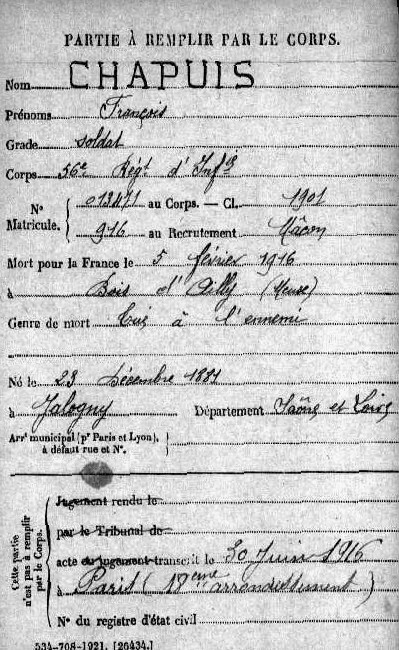 PARTIE À REMPLIR PAR LE CORPS.
Nom CHAPUIS
Prénoms François
Grade soldat
Corps 56e Régt d'Infie
No Matricule. { 012471 au Corps. — Cl. 1901
916 au Recrutement Mâcon
Mort pour la France le 5 février 1916
à Bois d'Ailly (Meuse)
Genre de mort Tué à l'ennemi
Né le 23 Décembre 1881
à Jalogny Département Saône et Loire
Arrt municipal (pr Paris et Lyon),
à défaut rue et No.
Cette partie n'est pas à remplir par le Corps.
Jugement rendu le
par le Tribunal de
acte ou jugement transcrit le 30 Juin 1916
à Paris ( arrondissement )
No du registre d'état civil
534-708-1921. [26434.]